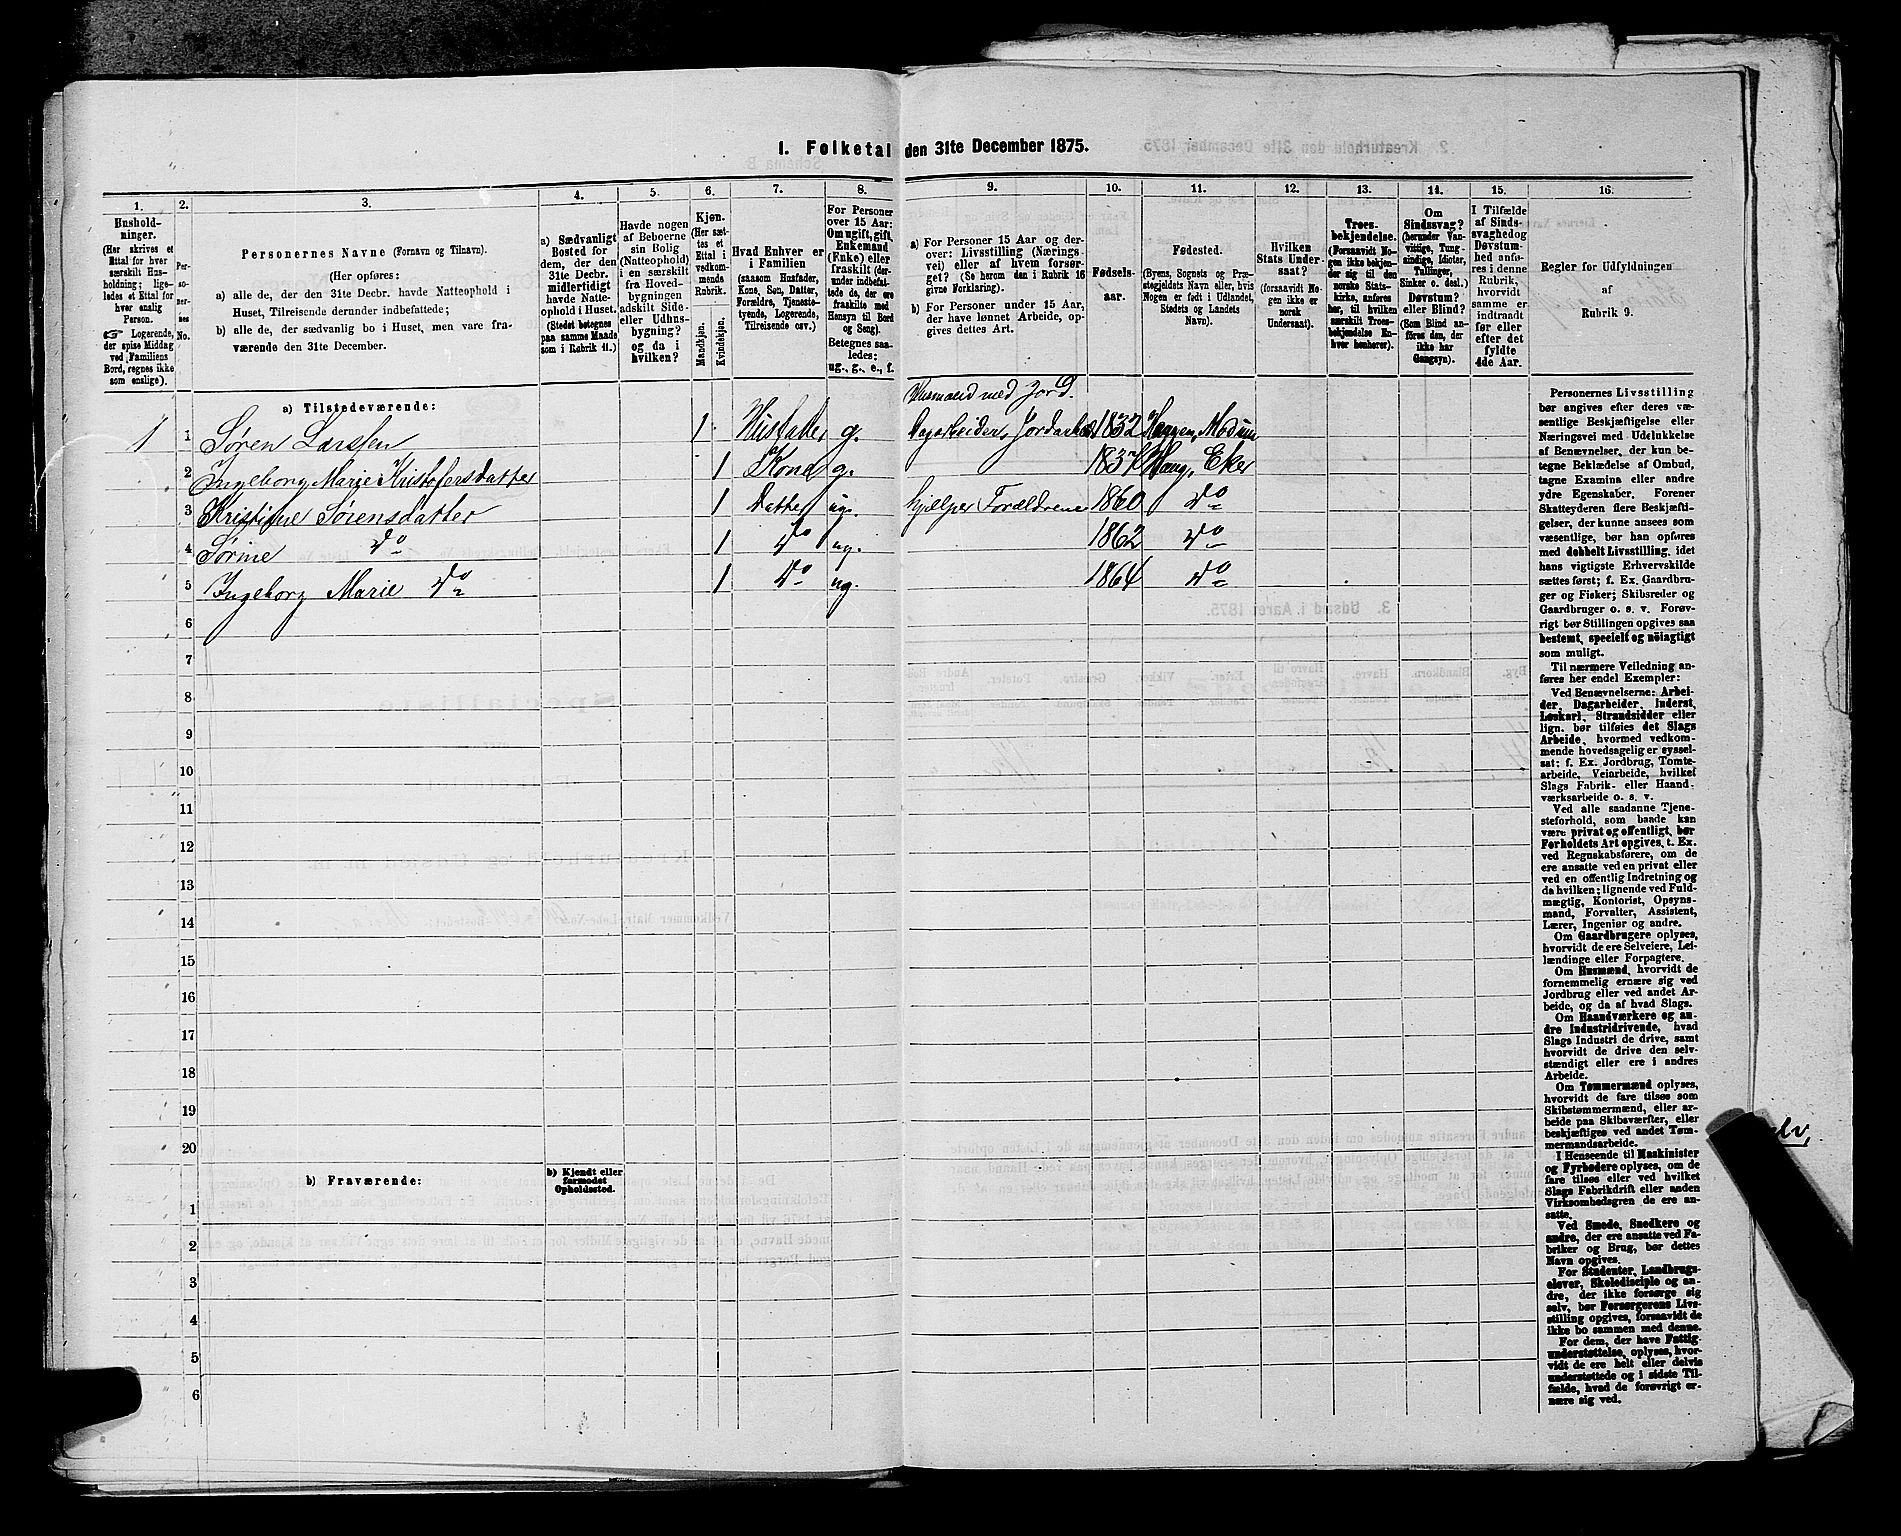 1. Folketal den 31te December 1875.
1.
Hushold-
ninger.
(Her skrives et
Ettal for hver
særskilt Hus-
holdning; lige-
ledes et Ettal for
hver enslig
Person.
☞ Logerende,
der spise Middag
ved Familiens
Bord, regnes ikke
som enslige).
2.
Per-
so-
ner-
nes
No.
3.
Personernes Navne (Fornavn og Tilnavn).
(Her opføres:
a) alle de, der den 31te Decbr. havde Natteophold i
Huset, Tilreisende derunder indbefattede;
b) alle de, der sædvanlig bo i Huset, men vare fra-
værende den 31te December.
4.
a) Sædvanligt
Bosted for
dem, der den
31te Decbr.
midlertidigt
havde Natte-
ophold i Huset.
(Stedet betegnes
paa samme Maade
som i Rubrik 11.)
5.
Havde nogen
af Beboerne
sin Bolig
(Natteophold)
i en særskilt
fra Hoved-
bygningen
adskilt Side-
eller Udhus-
bygning?
og da i
hvilken?
6.
Kjøn.
(Her sæt-
tes et
Ettal i
vedkom-
mende
Rubrik.
Mandkjøn.
Kvindekjøn.
7.
Hvad Enhver er
i Familien
(saasom Husfader,
Kone, Søn, Datter,
Forældre, Tjeneste-
tyende, Logerende,
Tilreisende osv.)
8.
For Personer
over 15 Aar:
Om ugift, gift,
Enkemand
(Enke) eller
fraskilt (der-
under indbefat-
tede de, der ere
fraskilte med
Hensyn til Bord
og Seng).
Betegnes saa-
ledes:
ug., g., e., f.
9.
a) For Personer 15 Aar og der-
over: Livsstilling (Nærings-
vei) eller af hvem forsør-
get? (Se herom den i Rubrik 16
givne Forklaring).
b) For Personer under 15 Aar,
der have lønnet Arbeide, op-
gives dettes Art.
10.
Fødsels-
aar.
11.
Fødested.
(Byens, Sognets og Præ-
stegjeldets Navn eller, hvis
Nogen er født i Udlandet,
Stedets og Landets
Navn).
12.
Hvilken
Stats Under-
saat?
(forsaavidt No-
gen ikke er
norsk
Undersaat).
13.
Troes-
bekjendelse.
(Forsaavidt No-
gen ikke bekjen-
der sig til den
norske Stats-
kirke, anføres
her, til hvilken
særskilt Troes-
bekjendelse En-
hver henhører).
14.
Om
Sindssvag?
(herunder Van-
vittige, Tung-
sindige, Idioter,
Tullinger,
Sinker o. desl.)
Døvstum?
eller Blind?
(Som Blind an-
føres den, der
ikke har
Gangsyn).
15.
I Tilfælde
af Sinds-
svaghed og
Døvstum-
hed anfø-
res i denne
Rubrik,
hvorvidt
samme er
indtraadt
før eller
efter det
fyldte
4de Aar.
16.
Regler for Udfyldningen
af
Rubrik 9.
a) Tilstedeværende:
Husmand med Jord.
1 1 Søren Larssen 1 Husfader g. Dagarbeider, Jordarb. 1832 Heggen, Modum
2 Ingeborg Marie Kristofersdatter 1 Kone g. 1837 Haug, Eker
3 Kristine Sørensdatter 1 Datter ug. hjælper Forældrene 1860 Do
4 Sørine Do 1 Do ug. 1862 Do
5 Ingeborg Marie Do 1 Do ug. 1864 Do
6
7
8
9
10
11
12
13
14
15
16
17
18
19
20
b) Fraværende:
b) Kjendt eller
formodet
Opholdssted.
1
2
3
4
5
6
Personernes Livsstilling
bør angives efter deres væ-
sentlige Beskjæftigelse eller
Næringsvei med Udelukkelse
af Benævnelser, der kun be-
tegne Beklædelse af Ombud,
tagne Examina eller andre
ydre Egenskaber. Forener
Skatteyderen flere Beskjæfti-
gelser, der kunne ansees som
væsentlige, bør han opføres
med dobbelt Livsstilling, idet
hans vigtigste Erhvervskilde
sættes først; f. Ex. Gaardbru-
ger og Fisker; Skibsreder og
Gaardbruger o. s. v. Forøv-
rigt bør Stillingen opgives saa
bestemt, specielt og nöiagtigt
som muligt.
Til nærmere Veiledning an-
føres her endel Exempler:
Ved Benævnelserne: Arbei-
der, Dagarbeider, Inderst,
Løskarl, Strandsidder eller
lign. bør tilføies det Slags
Arbeide, hvormed vedkom-
mende hovedsagelig er syssel-
sat; f. Ex. Jordbrug, Tomte-
arbeide, Veiarbeide, hvilket
Slags Fabrik- eller Haand-
værksarbeide o. s. v.
Ved alle saadanne Tjene-
steforhold, som baade kan
være privat og offentligt, bør
Forholdets Art opgives, t. Ex.
ved Regnskabsførere, om de
ere ansatte ved en privat eller
ved en offentlig Indretning og
da hvilken; lignende ved Fuld-
mægtig, Kontorist, Opsyns-
mand, Forvalter, Assistent,
Lærer, Ingeniør og andre.
Om Gaardbrugere oplyses,
hvorvidt de ere Selveiere, Lei-
lændinge eller Forpagtere.
Om Husmænd, hvorvidt de
fornemmelig ernære sig ved
Jordbrug eller ved andet Ar-
beide, og da af hvad Slags.
Om Haandværkere og an-
dre Industridrivende, hvad
Slags Industri de drive, samt
hvorvidt de drive den selv-
stændigt eller ere i andres
Arbeide.
Om Tømmermænd oplyses,
hvorvidt de fare tilsøs som
Skibstømmermænd, eller ar-
beide paa Skibsværfter, eller
beskjæftiges ved andet Tøm-
mermandsarbeide.
I Henseende til Maskinister
og Fyrbødere oplyses, om de
fare tilsøs eller ved hvilket
Slags Fabrikdrift eller anden
Virksomhedsgren de ere an-
satte.
Ved Smede, Snedkere og
andre, der ere ansatte ved Fa-
briker og Brug, bør dettes
Navn opgives.
For Studenter, Landbrugs-
elever, Skoledisciple og an-
dre, der ikke forsørge sig
selv, bør Forsørgerens Livs-
stilling opgives, forsaavidt de
ikke bo sammen med denne.
For dem, der have Fattig-
understøttelse, oplyses, hvor-
vidt de ere helt eller delvis
understøttede og i sidste Til-
fælde, hvad de forøvrigt er-
nære sig ved.